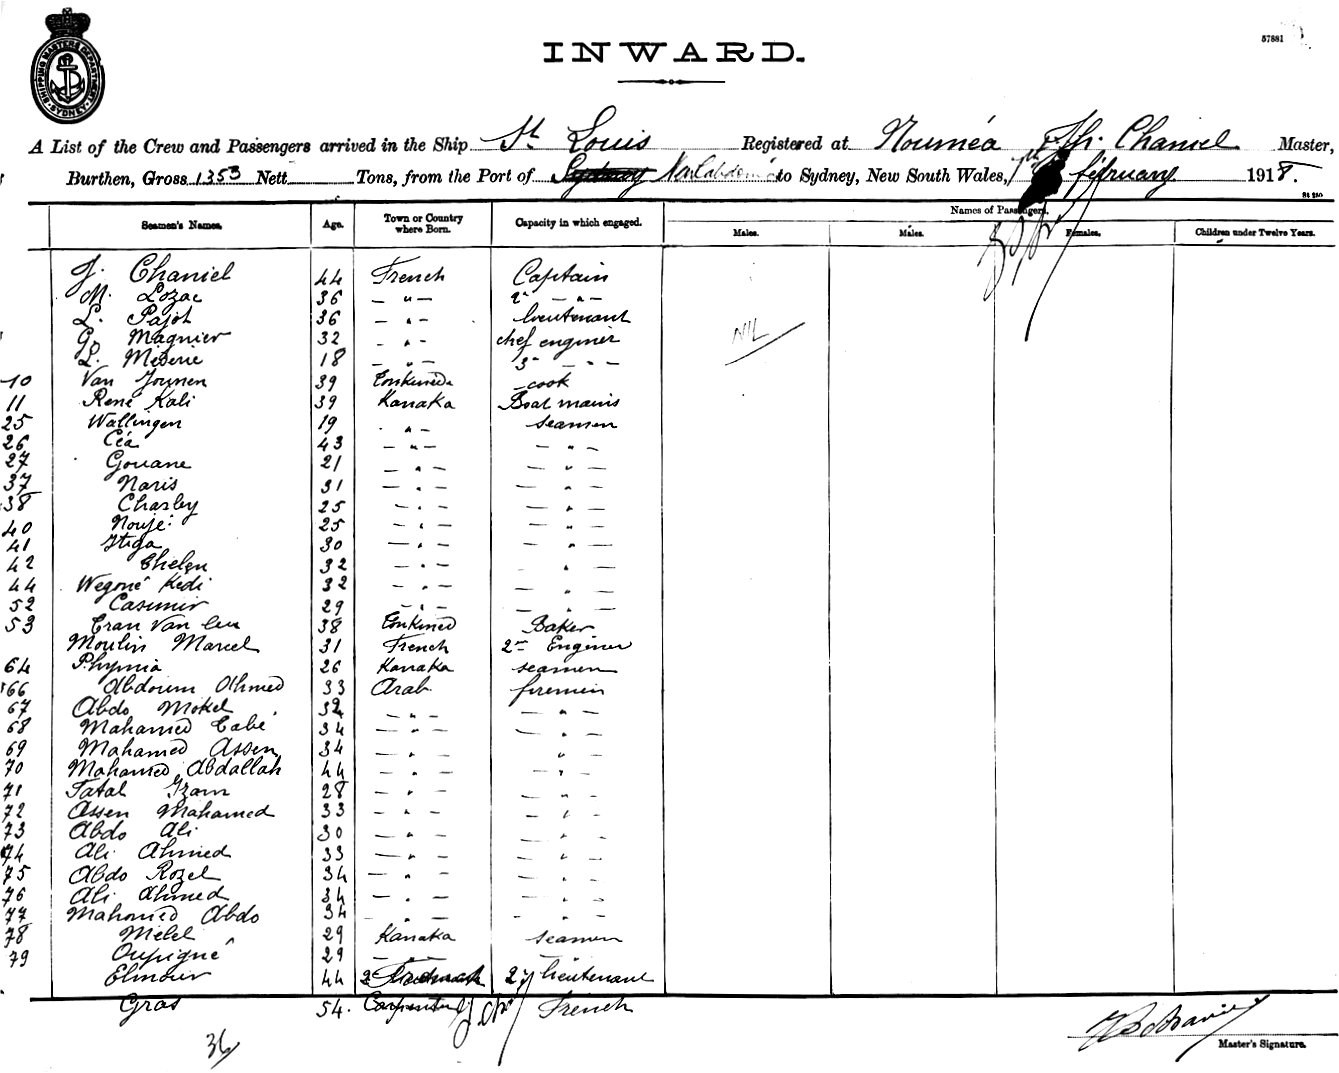 57881
SHIPPING MASTERS DEPARTMENT SYDNEY
INWARD.
A List of the Crew and Passengers arrived in the Ship St Louis Registered at Nouméa Chaniel Master,
Burthen, Gross 1353 Nett Tons, from the Port of Sydney to Sydney, New South Wales, 7th february 1918.
Seamen's Names. Age. Town or Country where Born. Capacity in which engaged. Names of Passengers.
Males. Males. Females. Children under Twelve Years.
J. Chaniel 44 French Captain
M. Lozac 36 — " — 2d — " —
L. Pajot 36 — " — lieutenant
G. Magnier 32 — " — chef enginer
NIL
L. Mederie 18 — " — 3d — " —
10 Van Jounen 39 Tonkined cook
11 René Kali 39 Kanaka Boat mains
25 Wallingen 19 — " — seamen
26 Céa 43 — " — — " —
27 Gouane 21 — " — — " —
37 Naris 31 — " — — " —
38 Charley 25 — " — — " —
40 Noujé 25 — " — — " —
41 Itiga 30 — " — — " —
42 Chelen 32 — " — — " —
44 Wegoné Kedi 32 — " — — " —
52 Casimir 29 — " — — " —
53 Tran Van 38 Tonkined Baker
Moulin Marcel 31 French 2me Enginer
64 Phymia 26 Kanaka seamen
66 Abdoum Ahmed 33 Arab firemen
67 Abdo Mokel 32 — " — — " —
68 Mahamed Cabé 34 — " — — " —
69 Mahamed Assen 34 — " — — " —
70 Mahamed Abdallah 44 — " — — " —
71 Fatal Izam 28 — " — — " —
72 Assen Mahamed 33 — " — — " —
73 Abdo Ali 30 — " — — " —
74 Ali Ahmed 33 — " — — " —
75 Abdo Rozel 34 — " — — " —
76 Ali Ahmed 34 — " — — " —
77 Mahomed Abdo 34 — " — — " —
78 Melel 29 Kanaka seamen
79 Oupigné 29 — " —
Elmour 44 2d lieutenant
Gras 54. Carpenter French
36
Master's Signature.